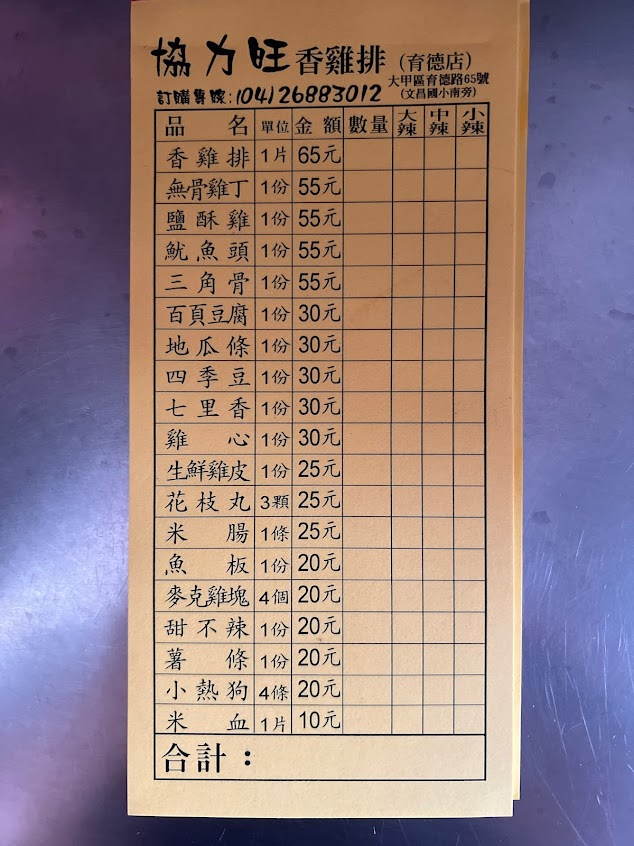 協力旺香雞排(育德店)
大甲區育德路65號
訂購專線:(04)26883012 (文昌國小南旁)
品名 單位 金額 數量 大辣 中辣 小辣
香雞排 1片 65元
無骨雞丁 1份 55元
鹽酥雞 1份 55元
魷魚頭 1份 55元
三角骨 1份 55元
百頁豆腐 1份 30元
地瓜條 1份 30元
四季豆 1份 30元
七里香 1份 30元
雞心 1份 30元
生鮮雞皮 1份 25元
花枝丸 3顆 25元
米腸 1條 25元
魚板 1份 20元
麥克雞塊 4個 20元
甜不辣 1份 20元
薯條 1份 20元
小熱狗 4條 20元
米血 1片 10元
合計：